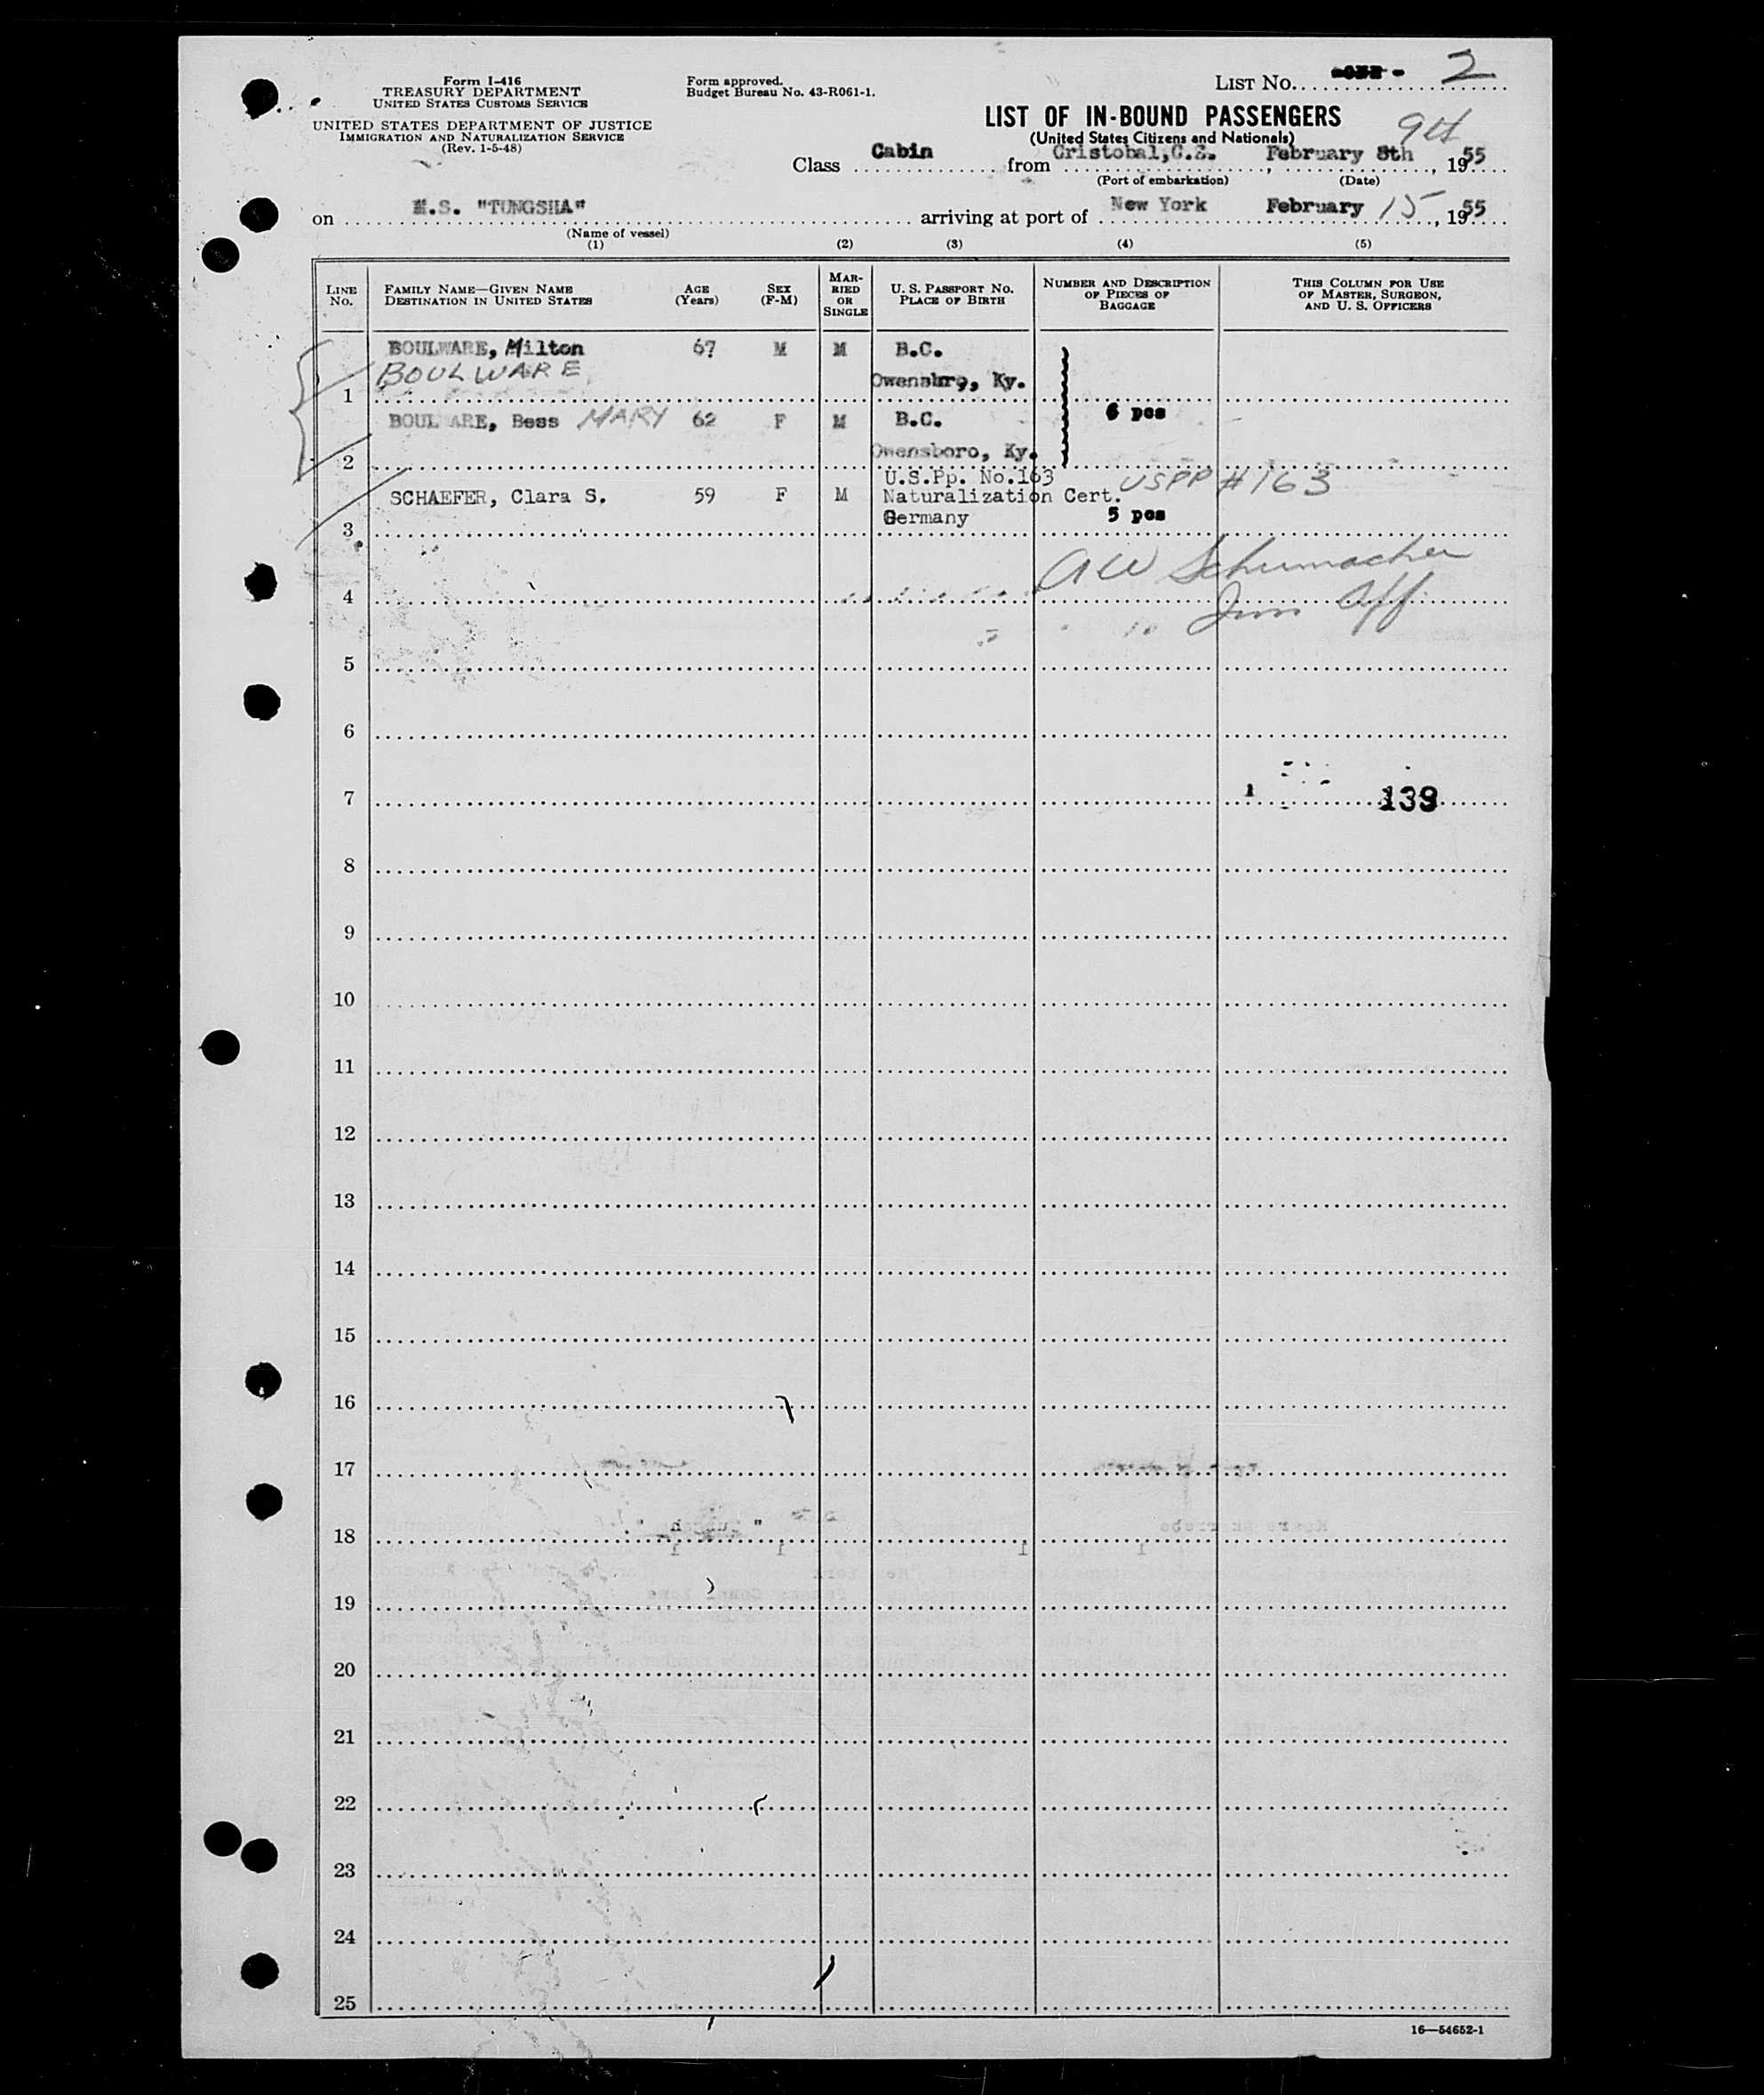 Form I-416
TREASURY DEPARTMENT
UNITED STATES CUSTOMS SERVICE
UNITED STATES DEPARTMENT OF JUSTICE
IMMIGRATION AND NATURALIZATION SERVICE
(Rev. 1-5-48)
Form approved.
Budget Bureau No. 43-R061-1.
LIST NO. 2
LIST OF IN-BOUND PASSENGERS
(United States Citizens and Nationals)
Class Cabin from Cristobal, C.Z. , February 8th 9th , 1955
(Port of embarkation) (Date)
on M.S. "TUNGSHA" arriving at port of New York February 15, 1955
(Name of vessel)
(1) (2) (3) (4) (5)
LINE NO. FAMILY NAME—GIVEN NAME DESTINATION IN UNITED STATES AGE (Years) SEX (F-M) MARRIED OR SINGLE U. S. PASSPORT NO. PLACE OF BIRTH NUMBER AND DESCRIPTION OF PIECES OF BAGGAGE THIS COLUMN FOR USE OF MASTER, SURGEON, AND U. S. OFFICERS
BOULWARE, Milton 67 M M B.C.
BOULWARE Owensbro, Ky.
1
BOULWARE, Bess MARY 62 F M B.C. 6 pcs
Owensboro, Ky.
2
U.S.Pp. No.163 USPP #163
SCHAEFER, Clara S. 59 F M Naturalization Cert.
Germany 5 pcs
3
AW Schumacher
4
Imm Off.
5
6
7 139
8
9
10
11
12
13
14
15
16
17
18
19
20
21
22
23
24
25
16—54652-1